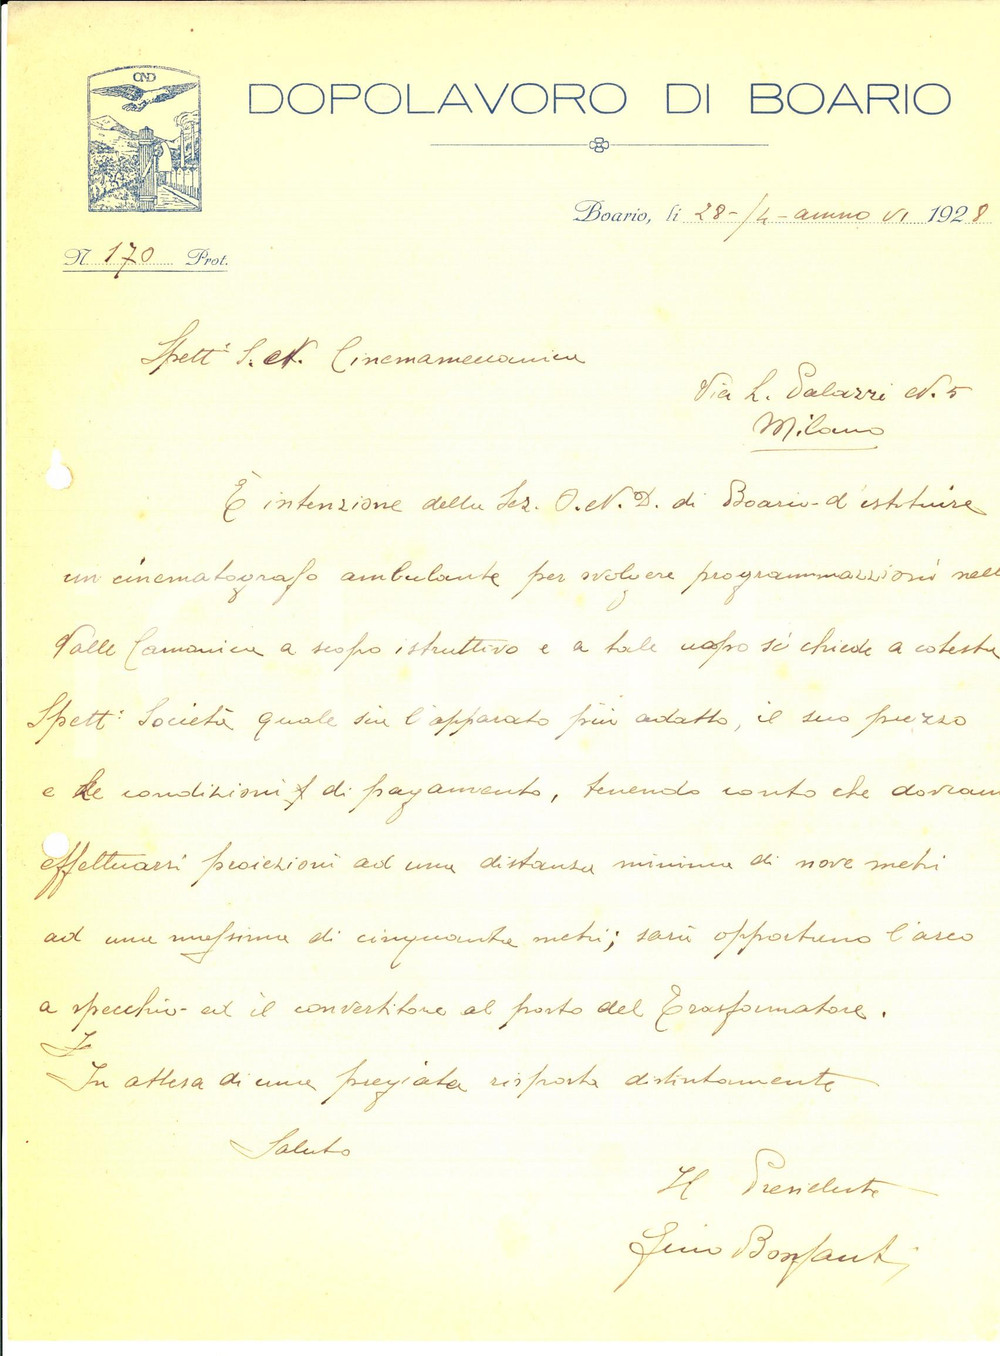 OND
DOPOLAVORO DI BOARIO
Boario, li 28-/4-anno VI 1928
N. 170 Prot.
Spett. S. N. Cinemameccanica
Via L. Palazzi N. 5
Milano
È intenzione della Sez. O.N.D. di Boario d'istituire
un cinematografo ambulante per svolgere programmazzioni nell
Valle Camonica a scopo istruttivo e a tale uopo si chiede a cotesta
Spett: Società quale sia l'apparato più adatto, il suo prezzo
e le condizioni di pagamento, tenendo conto che dovran
effettuarsi proiezioni ad una distanza minima di nove metri
ad una massima di cinquanta metri; sarà opportuno l'arco
a specchio ed il convertitore al posto del Trasformatore.
In attesa di una pregiata risposta distintamente
Saluto
Il Presidente
Gino Bonfanti